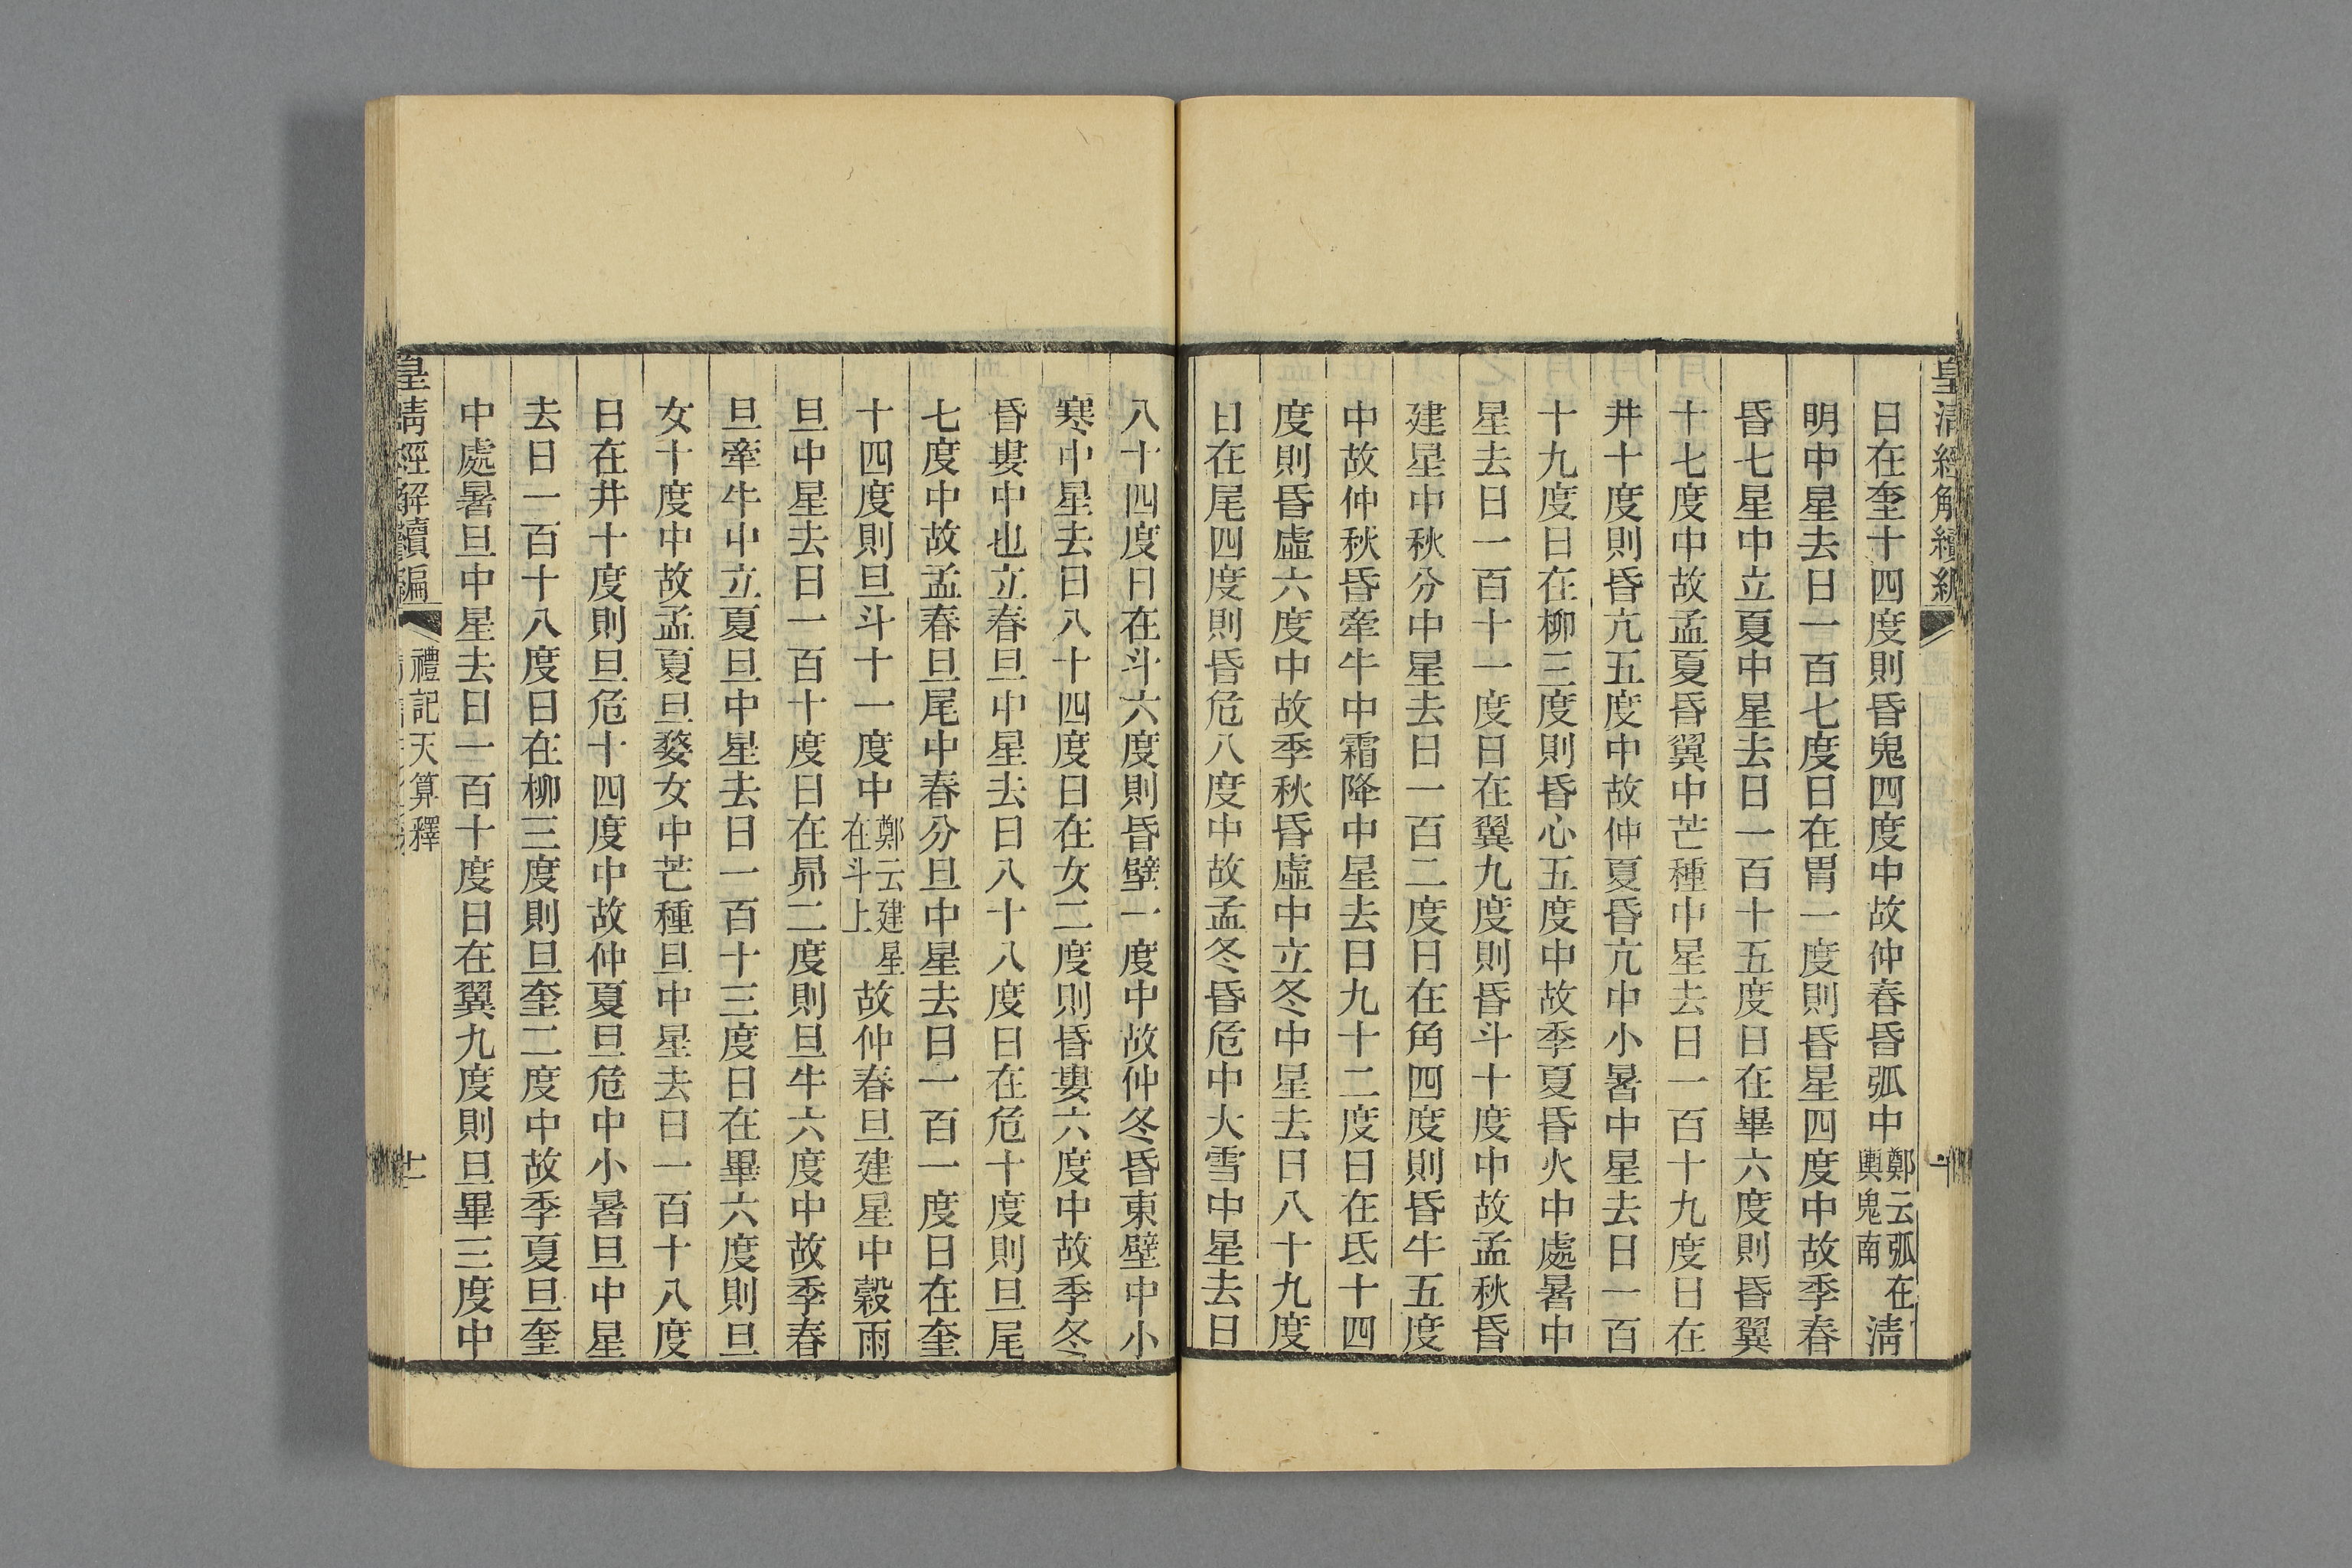 皇清經解續編
日在奎十四度則昏鬼四度中故仲春昏弧中鄭云弧在輿鬼南清
明中星去日一百七度日在胃一度則昏星四度中故季春
昏七星中立夏中星去日一百十五度日在畢六度則昏翼
十七度中故孟夏昏翼中芒種中星去日一百十九度日在
井十度則昏亢五度中故仲夏昏亢中小暑中星去日一百
十九度日在柳三度則昏心五度中故季夏昏火中處暑中
星去日一百十一度日在翼九度則昏斗十度中故孟秋昏
建星中秋分中星去日一百二度日在角四度則昏牛五度
中故仲秋昏牽牛中霜降中星去日九十二度日在氐十四
度則昏虛六度中故季秋昏虛中立冬中星去日八十九度
日在尾四度則昏危八度中故孟冬昏危中大雪中星去日
八十四度日在斗六度則昏壁一度中故仲冬昏東壁中小
寒中星去日八十四度日在女二度則昏婁六度中故季冬
昏婁中也立春旦中星去日八十八度日在危十度則旦尾
七度中故孟春旦尾中春分旦中星去日一百一度日在奎
十四度則旦斗十一度中鄭云建星在斗上故仲春旦建星中穀雨
旦中星去日一百十度日在昴二度則旦牛六度中故季春
旦牽牛中立夏旦中星去日一百十三度日在畢六度則旦
女十度中故孟夏旦婺女中芒種旦中星去日一百十八度
日在井十度則旦危十四度中故仲夏旦危中小暑旦中星
去日一百十八度日在柳三度則旦奎二度中故季夏旦奎
中處暑旦中星去日一百十度日在翼九度則旦畢三度中
皇清經解續編
禮記天算釋
十一